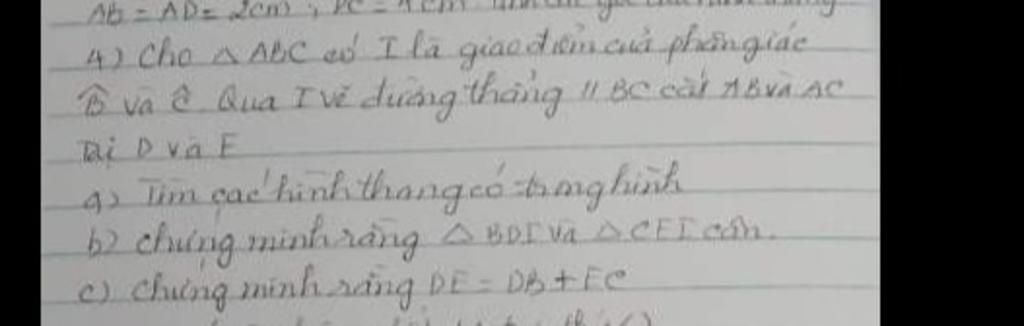 AB = AD = 2cm, DC = 4cm
4) Cho △ ABC có I là giao điểm của phân giác
B̂ và Ĉ Qua I vẽ đường thẳng // BC cắt AB và AC
Tại D và E
a) Tìm các hình thang có trong hình
b) chứng minh rằng △ BDI và △ CEI cân.
c) chứng minh rằng DE = DB + EC